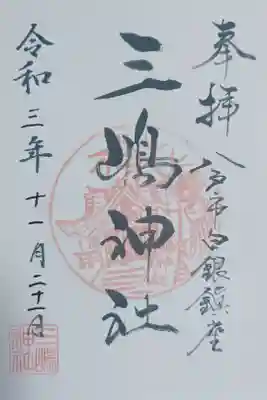 奉拝
八戸市白銀鎮座
三嶋神社
令和三年十一月二十一日
三嶋神社